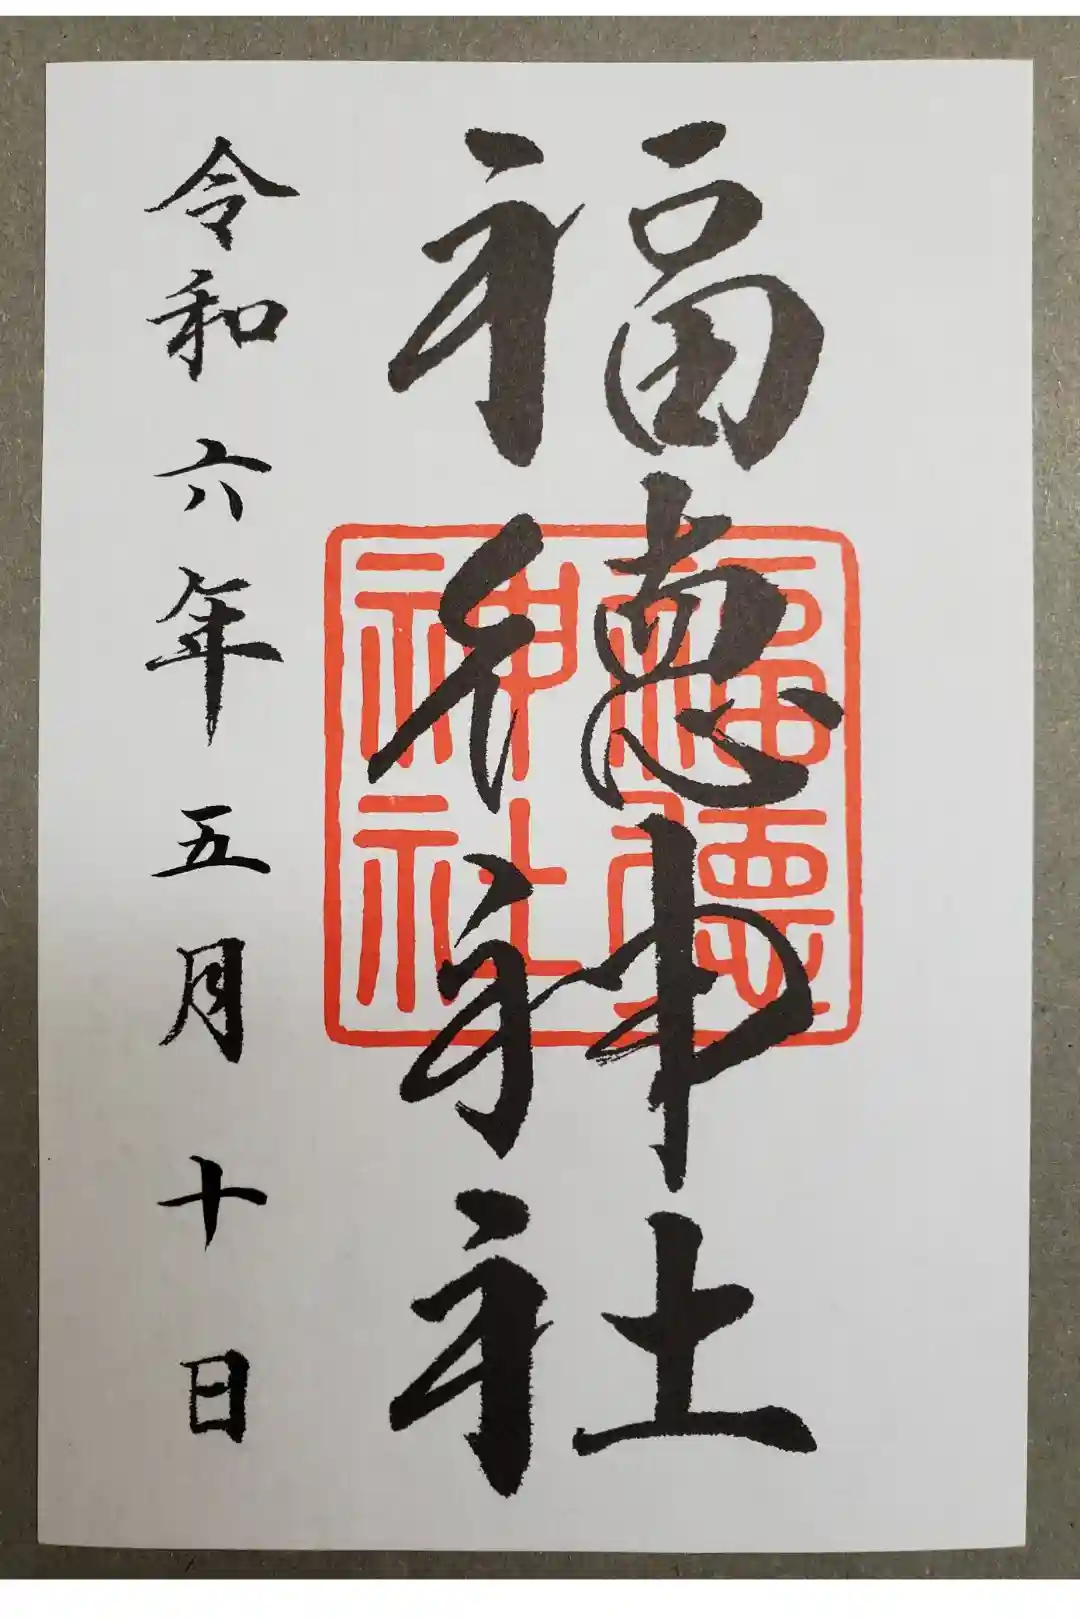 福德神社
福德神社
令和六年五月十日